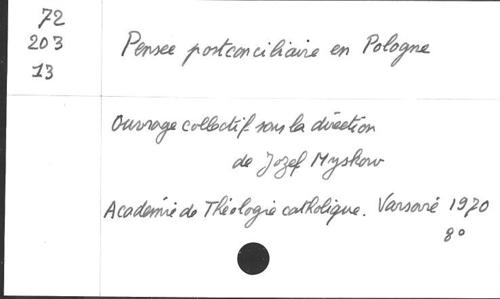 72
203
13
Pensee postconciliaire en Pologne
Ouvrage collectif sous la direction
de Jozef Myskow
Academie de Théologie catholique. Varsovie 1970
8°